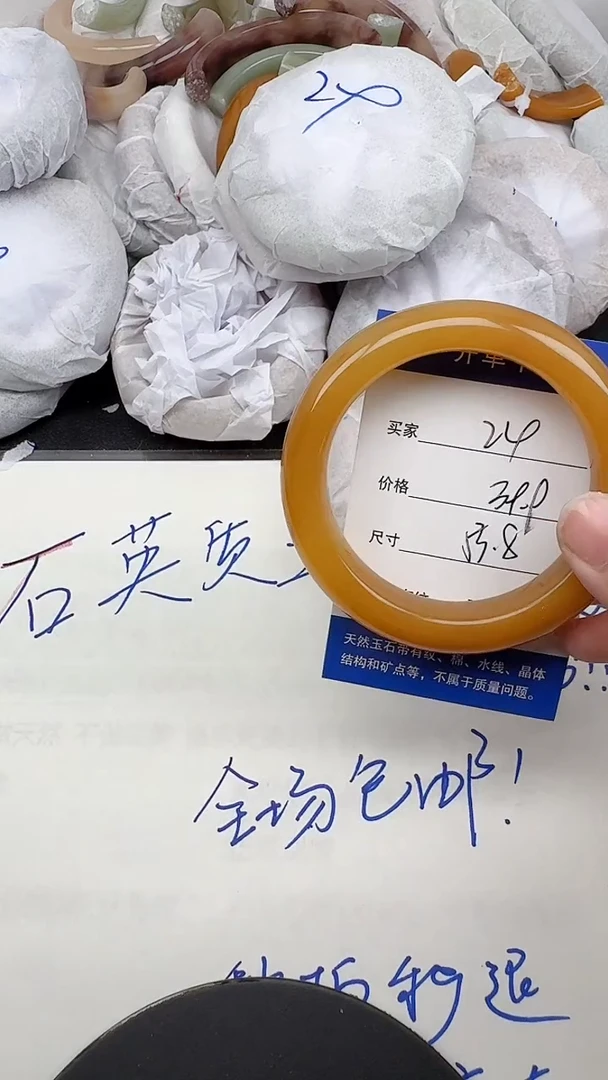 24
买家 24
价格 34.0
尺寸 55.8
石英质
天然玉石带有纹、棉、水线、晶体
结构和矿点等，不属于质量问题。
全场包邮！
秒拍秒退